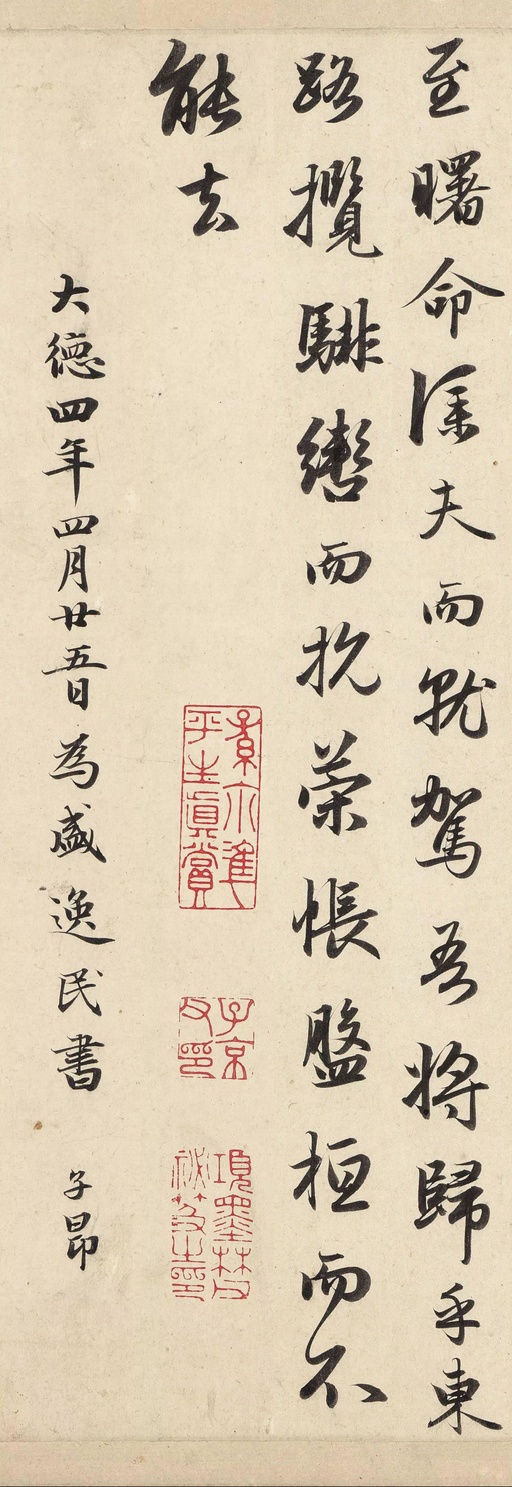 至曙命僕夫而就駕吾將歸乎東
路攬騑轡而抗策悵盤桓而不
能去
平生真賞
子京父印
項墨林父祕笈之印
大德四年四月廿五日為盛逸民書 子昂